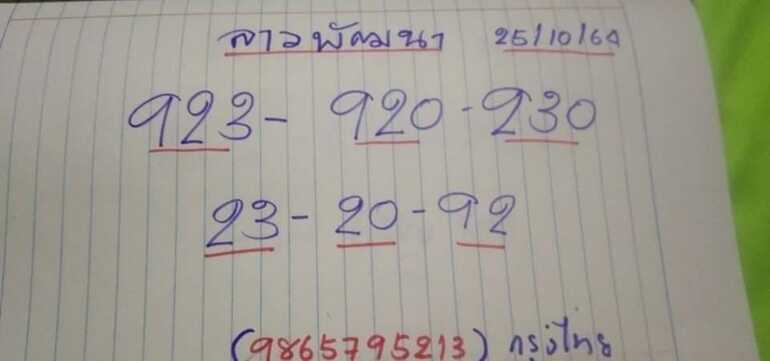 ลาวพัฒนา 25/10/64
923 - 920 - 230
23 - 20 - 92
(9865795213) กรุงไทย